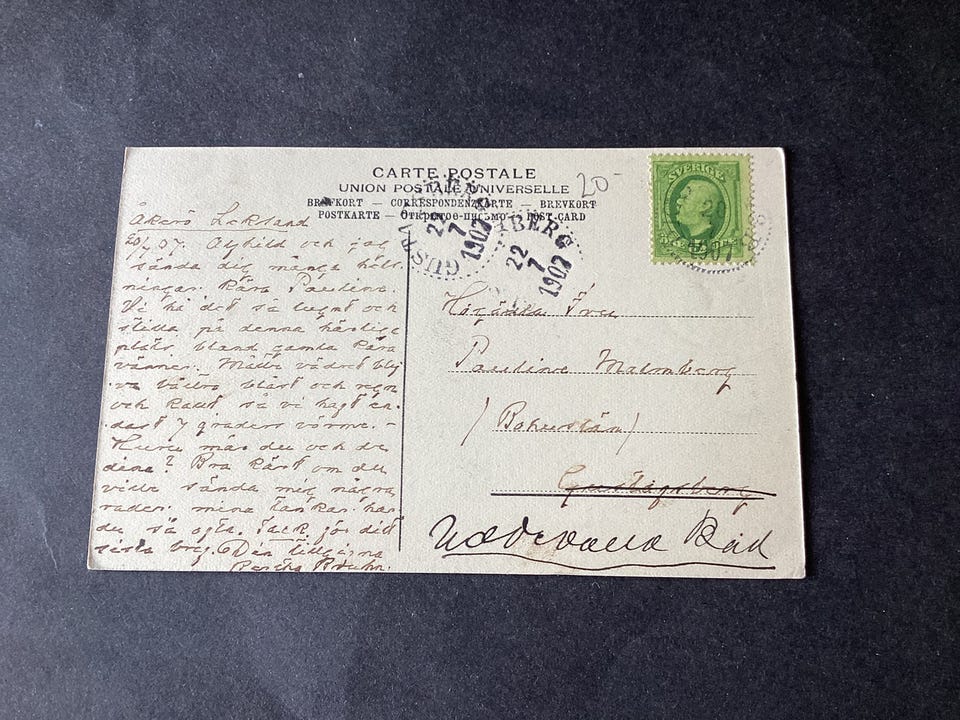 CARTE POSTALE
UNION POSTALE UNIVERSELLE
BREVKORT – CORRESPONDENZKARTE – BREVKORT
POSTKARTE – Открытое письмо – POST-CARD
20-
SVERIGE
5
22
7
1907
GUSTAFSBERG
22
7
1907
Åkerö
20/7 07. Alfhild och jag
sända dig många häls
ningar. Kära Pauline.
Vi ha det så lugnt och
stilla på denna härliga
plats bland gamla kära
vänner. Måtte vädret bli
va bättre blåst och regn
och kallt, så vi haft en-
dast 7 graders värme. –
Huru mår du och de
dina? Bra kärt om du
ville sända mig några
rader. mina tankar har
du så ofta. Tack för ditt
sista bref. Din tillgifna
Bertha Bruhn.
Högädla Fru
Pauline Malmberg
(Bohuslän)
Gustafsberg
Uddevalla Bad